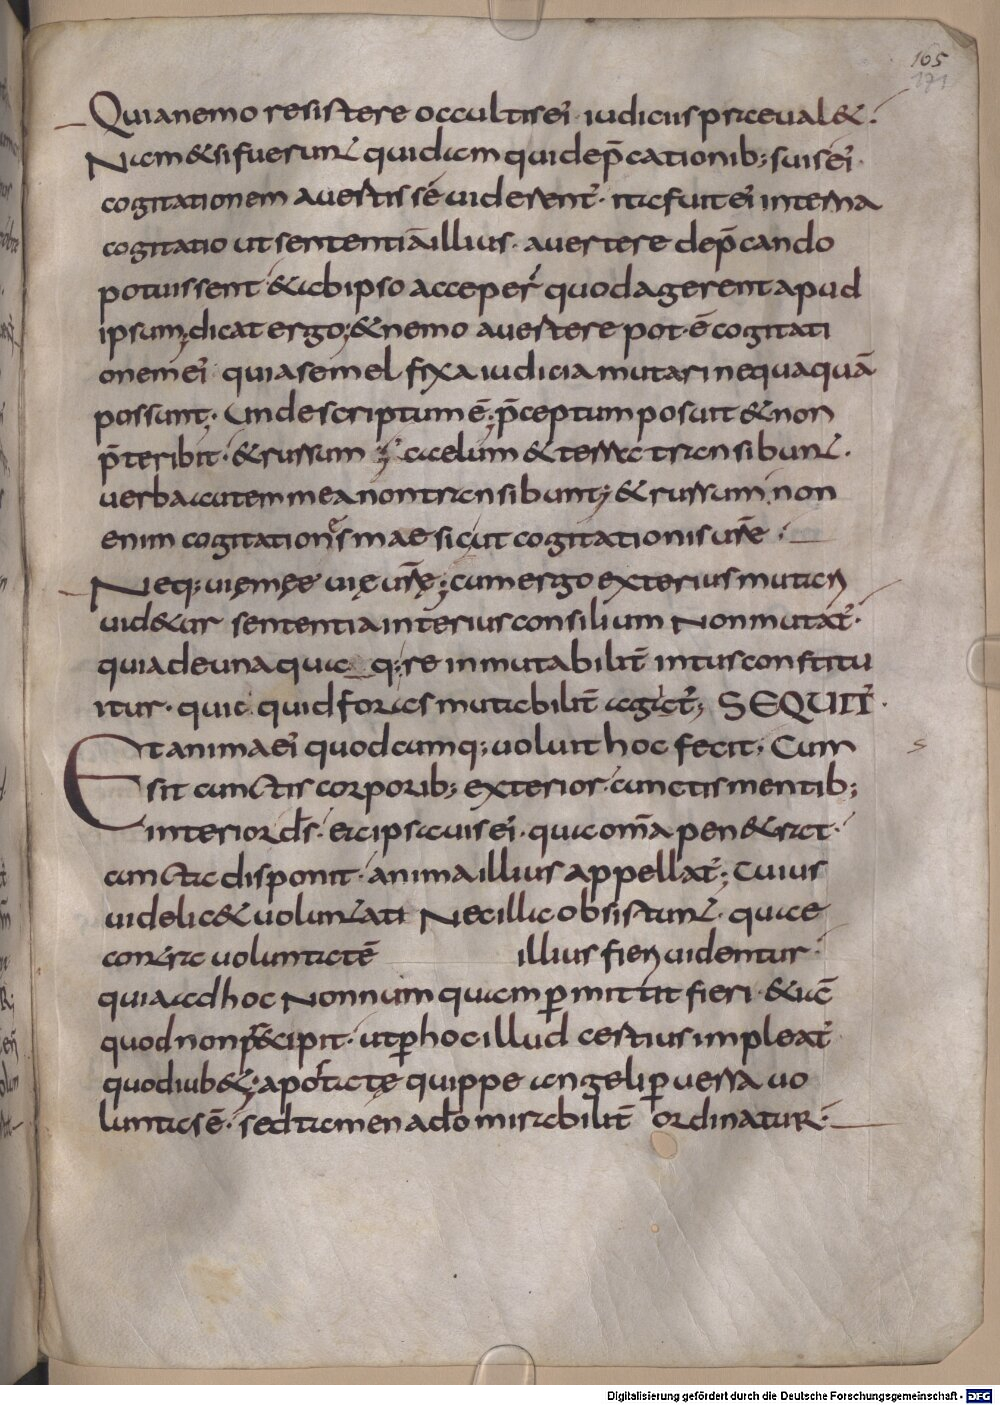 165
171
Quia nemo resistere occultis ei iudiciis praeual&.
Nam & si fuerunt quidam qui dep̄cationib; suis ei
cogitationem auertisse uiderent̄. ita fuit ei interna
cogitatio ut sententiā illius. auertere dep̄cando
potuissent & ab ipso acceper̄ quod agerent apud
ipsum; dicat ergo; & nemo auertere pot ē cogitati
onem ei quia semel fixa iudicia mutari nequaquā
possunt; Unde scriptum ē; p̄ceptum posuit & non
p̄teribit. & rursum ; caelum & terra transibunt.
uerba autem mea non transibunt; & rursum non
enim cogitationes mae sicut cogitationis ur̄e
Neq; uię męę uię ur̄ę; cum ergo exterius mutari
uid&ur sententia interius consilium Non mutat̄.
quia de unaquaq;re inmutabilit̄ intus constitu
itur. quic quid foras mutabilit̄ agit̄; SEQUIT̄.
Et anima ei quodcumq; uoluit hoc fecit; Cum
sit cunctis corporib; exterior. cunctis mentib;
interior d̄s. ea ipsa uis ei. qua om̄a pen&rat.
cuncta disponit. anima illius appellat̄; Cuius
uidelic& uoluntati Nec illa obsistunt. quae
contra uoluntatē illius fieri uidentur.
quia ad hoc Non numquam p mittit fieri. & iā
quod non praecipit. ut p hoc illud certius impleat̄
quod iub&; apostatę quippe angeli peruersa uo
luntas ē. sed tamen a dō mirabilit̄ ordinatur.
Digitalisierung gefördert durch die Deutsche Forschungsgemeinschaft - DFG